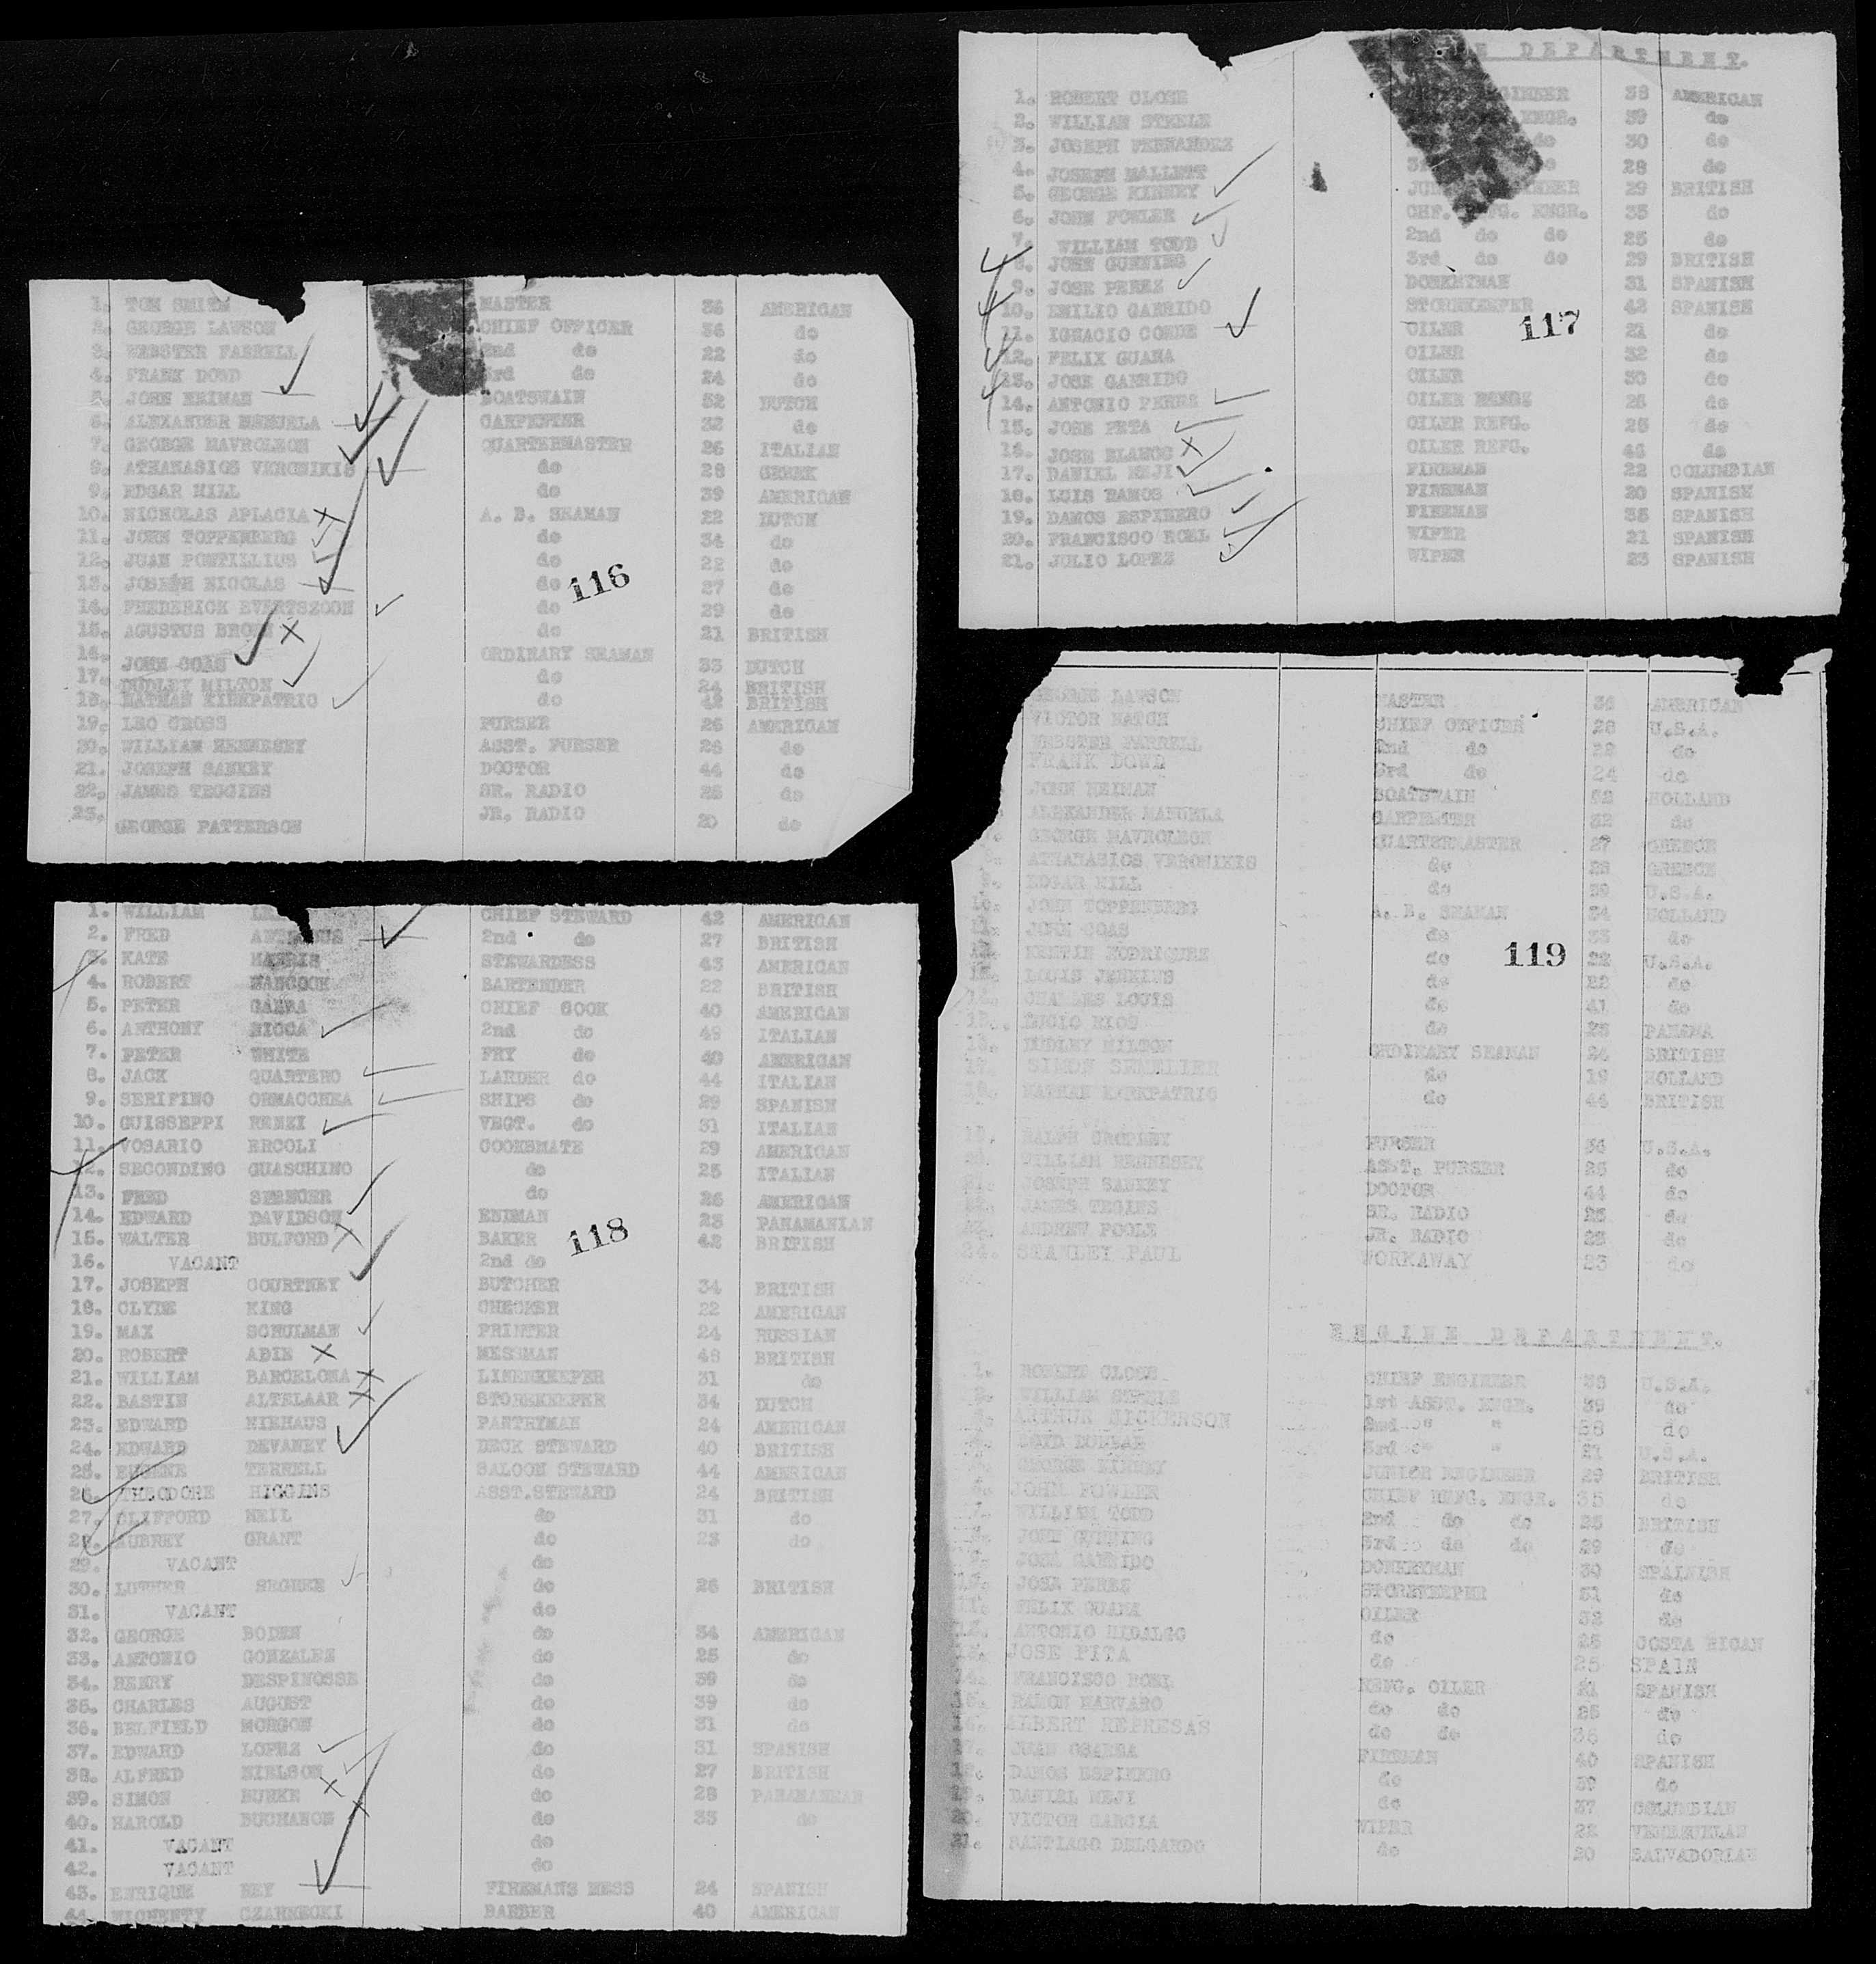 1. TOM SMITH MASTER 36 AMERICAN
2. GEORGE LAWSON CHIEF OFFICER 36 do
3. WEBSTER FARRELL 2nd do 22 do
4. FRANK DOWD 3rd do 24 do
5. JOHN HEIMAN BOATSWAIN 52 DUTCH
6. ALEXANDER CARPENTER 32 do
7. GEORGE MAVROLEON QUARTERMASTER 26 ITALIAN
8. ATHANASIOS VERONIKIS do 28 GREEK
9. EDGAR HILL do 39 AMERICAN
10. NICHOLAS APLACIA A. B. SEAMAN 22 DUTCH
11. JOHN TOPPENBERG do 34 do
12. JUAN PONTILLIUS do 22 do
13. JOSEPH NICOLAS do 27 do
116
14. FREDERICK EVERTSZOON do 29 do
15. AGUSTUS do 21 BRITISH
16. JOHN COAS ORDINARY SEAMAN 33 DUTCH
17. DUDLEY MILTON do 24 BRITISH
18. NATHAN KIRKPATRIC do 42 BRITISH
19. LEO GROSS PURSER 26 AMERICAN
20. WILLIAM HENNESEY ASST. PURSER 26 do
21. JOSEPH SANKEY DOCTOR 44 do
22. JAMES TEGGINS SR. RADIO 25 do
23. GEORGE PATTERSON JR. RADIO 20 do
DEPARTMENT.
1. ROBERT CLOSE 38 AMERICAN
2. WILLIAM STEELE ENGR. 39 do
3. JOSEPH FERNANDEZ do 30 do
4. JOSEPH MALLETT 28 do
5. GEORGE KINNEY 29 BRITISH
6. JOHN FOWLER CHF. ENGR. 35 do
7. WILLIAM TODD 2nd do do 25 do
8. JOHN GUNNING 3rd do do 29 BRITISH
9. JOSE PEREZ DONKEYMAN 31 SPANISH
10. EMILIO GARRIDO STOREKEEPER 42 SPANISH
117
11. IGNACIO CONDE OILER 21 do
12. FELIX GUANA OILER 32 do
13. JOSE GARRIDO OILER 30 do
14. ANTONIO OILER 25 do
15. JOSE PETA OILER REFG. 25 do
16. JOSE BLANCO OILER REFG. 46 do
17. DANIEL MEJI FIREMAN 22 COLUMBIAN
18. LUIS RAMOS FIREMAN 20 SPANISH
19. DAMOS ESPINERO FIREMAN 35 SPANISH
20. FRANCISCO ROEL WIPER 21 SPANISH
21. JULIO LOPEZ WIPER 23 SPANISH
1. WILLIAM CHIEF STEWARD 42 AMERICAN
2. FRED 2nd do 27 BRITISH
3. KATE HARRIS STEWARDESS 43 AMERICAN
4. ROBERT HANCOCK BARTENDER 22 BRITISH
5. PETER CHIEF COOK 40 AMERICAN
6. ANTHONY RICCA 2nd do 49 ITALIAN
7. PETER WHITE FRY do 40 AMERICAN
8. JACK QUARTERO LARDER do 44 ITALIAN
9. SERIFINO ORMACCHEA SHIPS do 29 SPANISH
10. GUISSEPPI RENZI VEGT. do 31 ITALIAN
11. VOSARIO ERCOLI COOKSMATE 29 AMERICAN
12. SECONDINO GUASCHINO do 25 ITALIAN
13. FRED SPENCER do 26 AMERICAN
14. EDWARD DAVIDSON ENDMAN 23 PANAMANIAN
15. WALTER BULFORD BAKER 42 BRITISH
118
16. VACANT 2nd do
17. JOSEPH COURTNEY BUTCHER 34 BRITISH
18. CLYDE KING CHECKER 22 AMERICAN
19. MAX SCHULMAN PRINTER 24 RUSSIAN
20. ROBERT ADIE MESSMAN 48 BRITISH
21. WILLIAM BARCELONA LINENKEEPER 31 do
22. BASTIN ALTELAAR STOREKEEPER 34 DUTCH
23. EDWARD NIEHAUS PANTRYMAN 24 AMERICAN
24. EDWARD DEVANEY DECK STEWARD 40 BRITISH
25. EUGENE TERRELL SALOON STEWARD 44 AMERICAN
26. THEODORE HIGGINS ASST.STEWARD 24 BRITISH
27. CLIFFORD NEIL do 31 do
28. AUBREY GRANT do 23 do
29. VACANT do
30. LUTHER do 26 BRITISH
31. VACANT do
32. GEORGE BODEN do 34 AMERICAN
33. ANTONIO GONZALEZ do 25 do
34. HENRY DESPINOSSE do 39 do
35. CHARLES AUGUST do 39 do
36. BELFIELD MORGON do 31 do
37. EDWARD LOPEZ do 31 SPANISH
38. ALFRED NIELSON do 27 BRITISH
39. SIMON BURKE do 28 PANAMANIAN
40. HAROLD BUCHANON do 33 do
41. VACANT do
42. VACANT do
43. ENRIQUE REY FIREMANS MESS 24 SPANISH
44. CZARNECKI BARBER 40 AMERICAN
GEORGE LAWSON MASTER 36 AMERICAN
VICTOR HATCH CHIEF OFFICER 28 U.S.A.
WEBSTER FARRELL 2nd do 22 do
FRANK DOWD 3rd do 24 do
JOHN HEIMAN BOATSWAIN 52 HOLLAND
ALEXANDER MANUELA CARPENTER 32 do
GEORGE MAVROLEON QUARTERMASTER 27 GREECE
8. ATHANASIOS VERONIKIS do 28 GREECE
9. EDGAR HILL do 39 U.S.A.
10. JOHN TOPPENBERG A. B. SEAMAN 34 HOLLAND
11. JOHN COAS do 33 do
12. RODRIQUEZ do 22 U.S.A.
119
13. LOUIS JENKINS do 22 do
14. CHARLES LOUIS do 41 do
15. LUCIO RIOS do 25 PANAMA
16. DUDLEY MILTON ORDINARY SEAMAN 24 BRITISH
17. SIMON do 19 HOLLAND
18. NATHAN KIRKPATRIC do 44 BRITISH
19. RALPH CROPLEY PURSER 36 U.S.A.
20. WILLIAM HENNESEY ASST. PURSER 26 do
21. JOSEPH SANKEY DOCTOR 44 do
22. JAMES TEGINS SR. RADIO 25 do
23. ANDREW POOLE JR. RADIO 23 do
24. STANLEY PAUL WORKAWAY 23 do
ENGINE DEPARTMENT.
1. ROBERT CLOSE CHIEF ENGINEER 38 U.S.A.
2. WILLIAM STEELE 1st ASST. ENGR. 39 do
3. ARTHUR NICKERSON 2nd " " 38 do
4. BOYD DUNBAR 3rd " " 21 U.S.A.
5. GEORGE KINNEY JUNIOR ENGINEER 29 BRITISH
6. JOHN FOWLER CHIEF REFG. ENGR. 35 do
7. WILLIAM TODD 2nd do do 25 BRITISH
8. JOHN GUNNING 3rd do do 29 do
9. JOSE GARRIDO DONKEYMAN 30 SPAINISH
10. JOSE PEREZ STOREKEEPER 31 do
11. FELIX GUANA OILER 32 do
12. ANTONIO HIDALGO do 25 COSTA RICAN
13. JOSE PITA do 25 SPAIN
14. FRANCISCO ROEL REFG. OILER 21 SPANISH
15. RAMON NARVARO do do 25 do
16. ALBERT REPRESAS do do 36 do
17. JUAN FIREMAN 40 SPANISH
18. DAMOS ESPINERO do 39 do
19. DANIEL MEJI do 37 COLUMBIAN
20. VICTOR GARCIA WIPER 22 VENEZUELAN
21. SANTIAGO DELGARDO do 20 SALVADORIAN